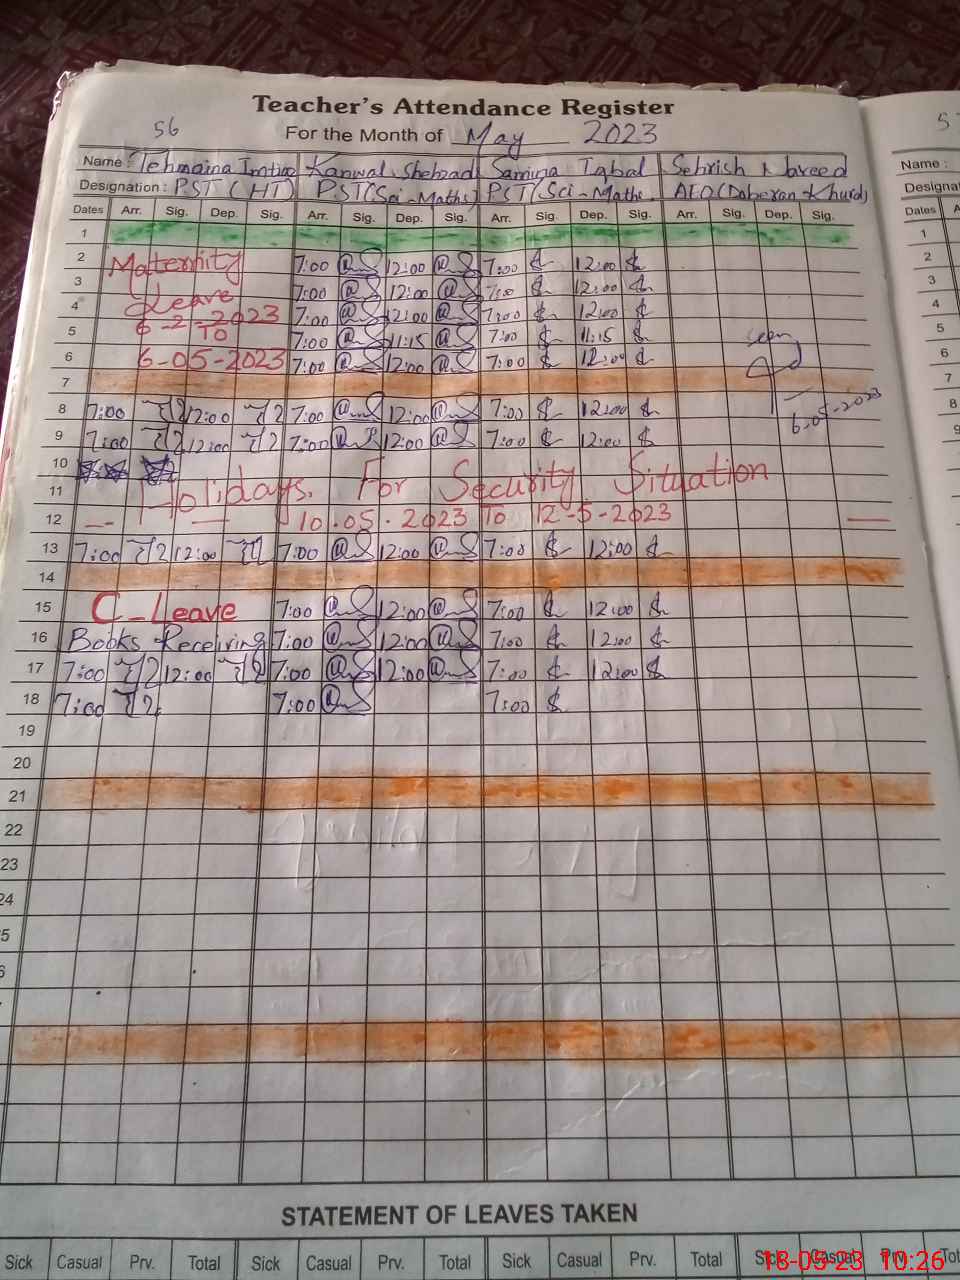 Teacher's Attendance Register
56 For the Month of May 2023 5
Name : Tehmaina Imtiaz Kanwal Shehzad Samina Iqbal Sehrish Naveed Name :
Designation : PST (HT) PST (Sci-Maths) PST (Sci-Maths AEO (Doberan Khurd) Designat
Dates Arr. Sig. Dep. Sig. Arr. Sig. Dep. Sig. Arr. Sig. Dep. Sig. Arr. Sig. Dep. Sig. Dates A
1 1
2 Maternity 7:00 12:00 7:00 12:00 2
3 Leave 7:00 12:00 7:00 12:00 3
4 6-2-2023 7:00 12:00 7:00 12:00 4
5 TO 7:00 11:15 7:00 11:15 seen 5
6 6-05-2023 7:00 12:00 7:00 12:00 6
7 6-05-2023 7
8 7:00 12:00 7:00 12:00 7:00 12:00 8
9 7:00 12:00 7:00 12:00 7:00 12:00 9
10
11 Holidays. For Security Situation
12 10.05.2023 To 12-5-2023
13 7:00 12:00 7:00 12:00 7:00 12:00
14
15 C-Leave 7:00 12:00 7:00 12:00
16 Books Receiving 7:00 12:00 7:00 12:00
17 7:00 12:00 7:00 12:00 7:00 12:00
18 7:00 7:00 7:00
19
20
21
22
23
24
5
6
STATEMENT OF LEAVES TAKEN
Sick Casual Prv. Total Sick Casual Prv. Total Sick Casual Prv. Total Sick Casual Prv. Tot
18-05-23 10:26